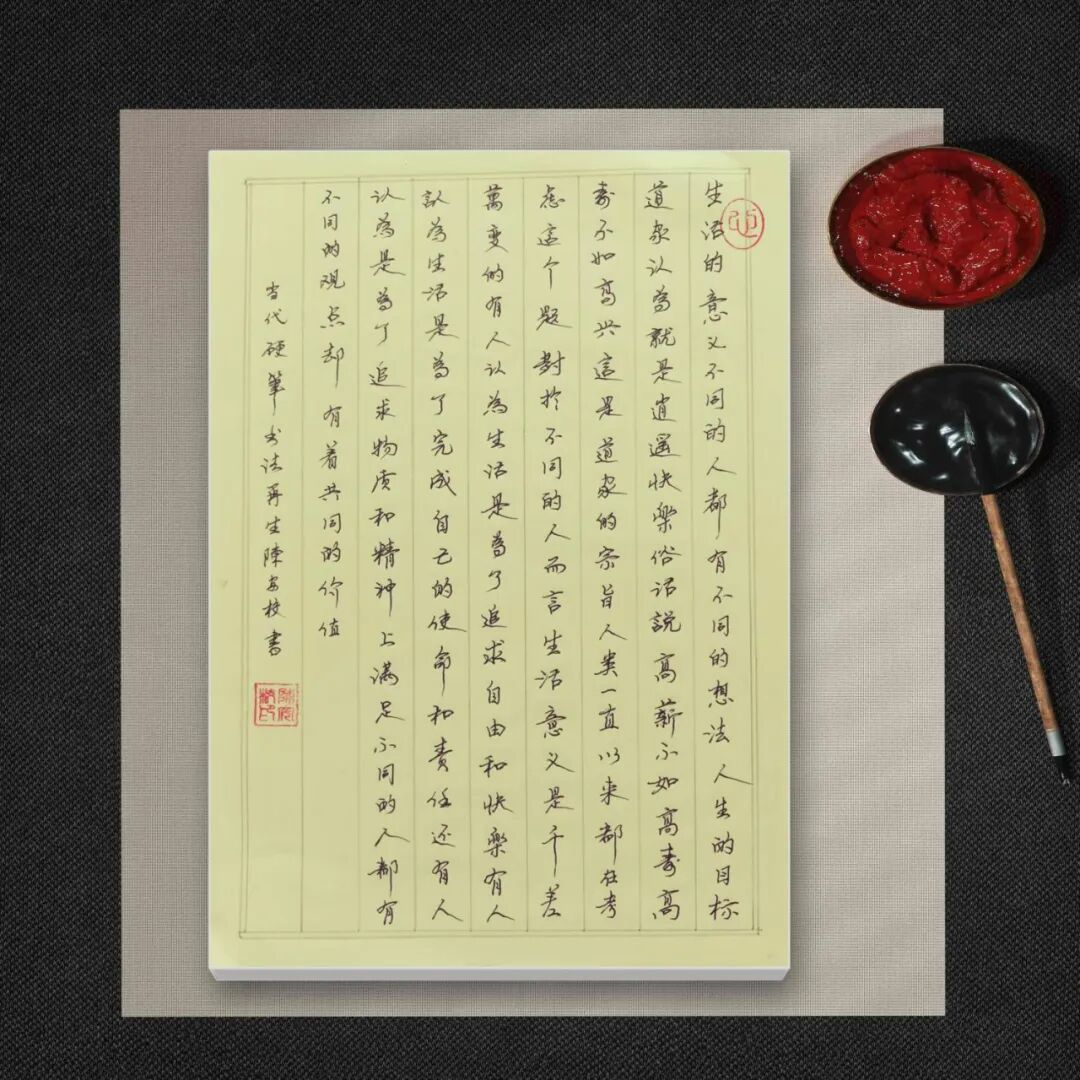 生活的意义不同的人都有不同的想法人生的目标
道家认为就是逍遥快樂俗话説高薪不如高寿高
寿不如高兴這是道家的宗旨人类一直以来都在考
虑這个题對於不同的人而言生活意义是千差
萬变的有人认为生活是为了追求自由和快樂有人
認为生活是为了完成自己的使命和责任还有人
认为是为了追求物质和精神上满足不同的人都有
不同的观点却有着共同的价值
当代硬筆书法再生陳安校書